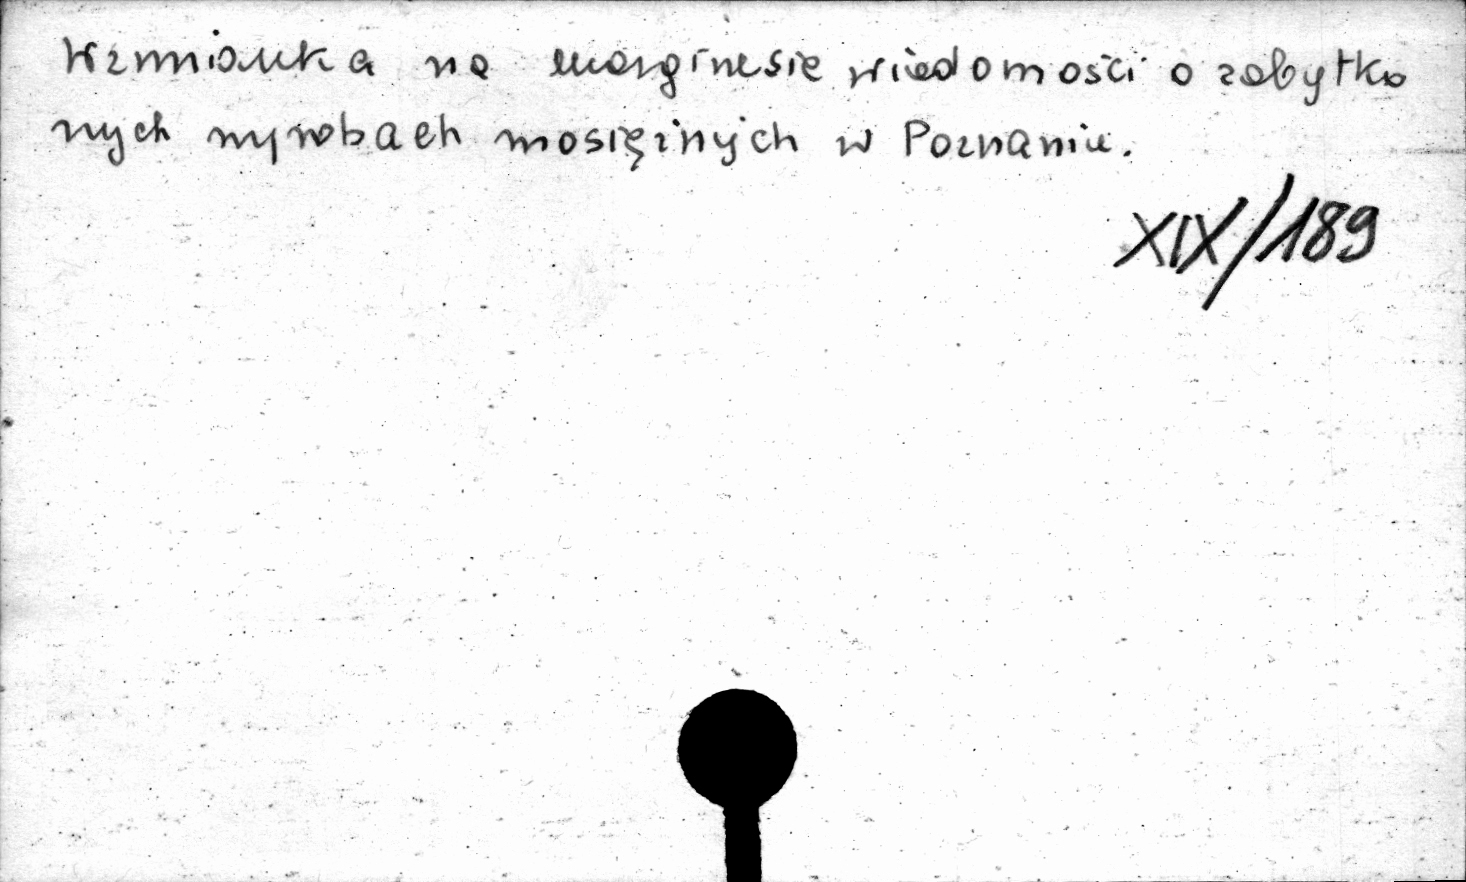 Wzmianka na marginesie wiadomości o zabytko
wych wyrobach mosiężnych w Poznaniu.
XIX/189